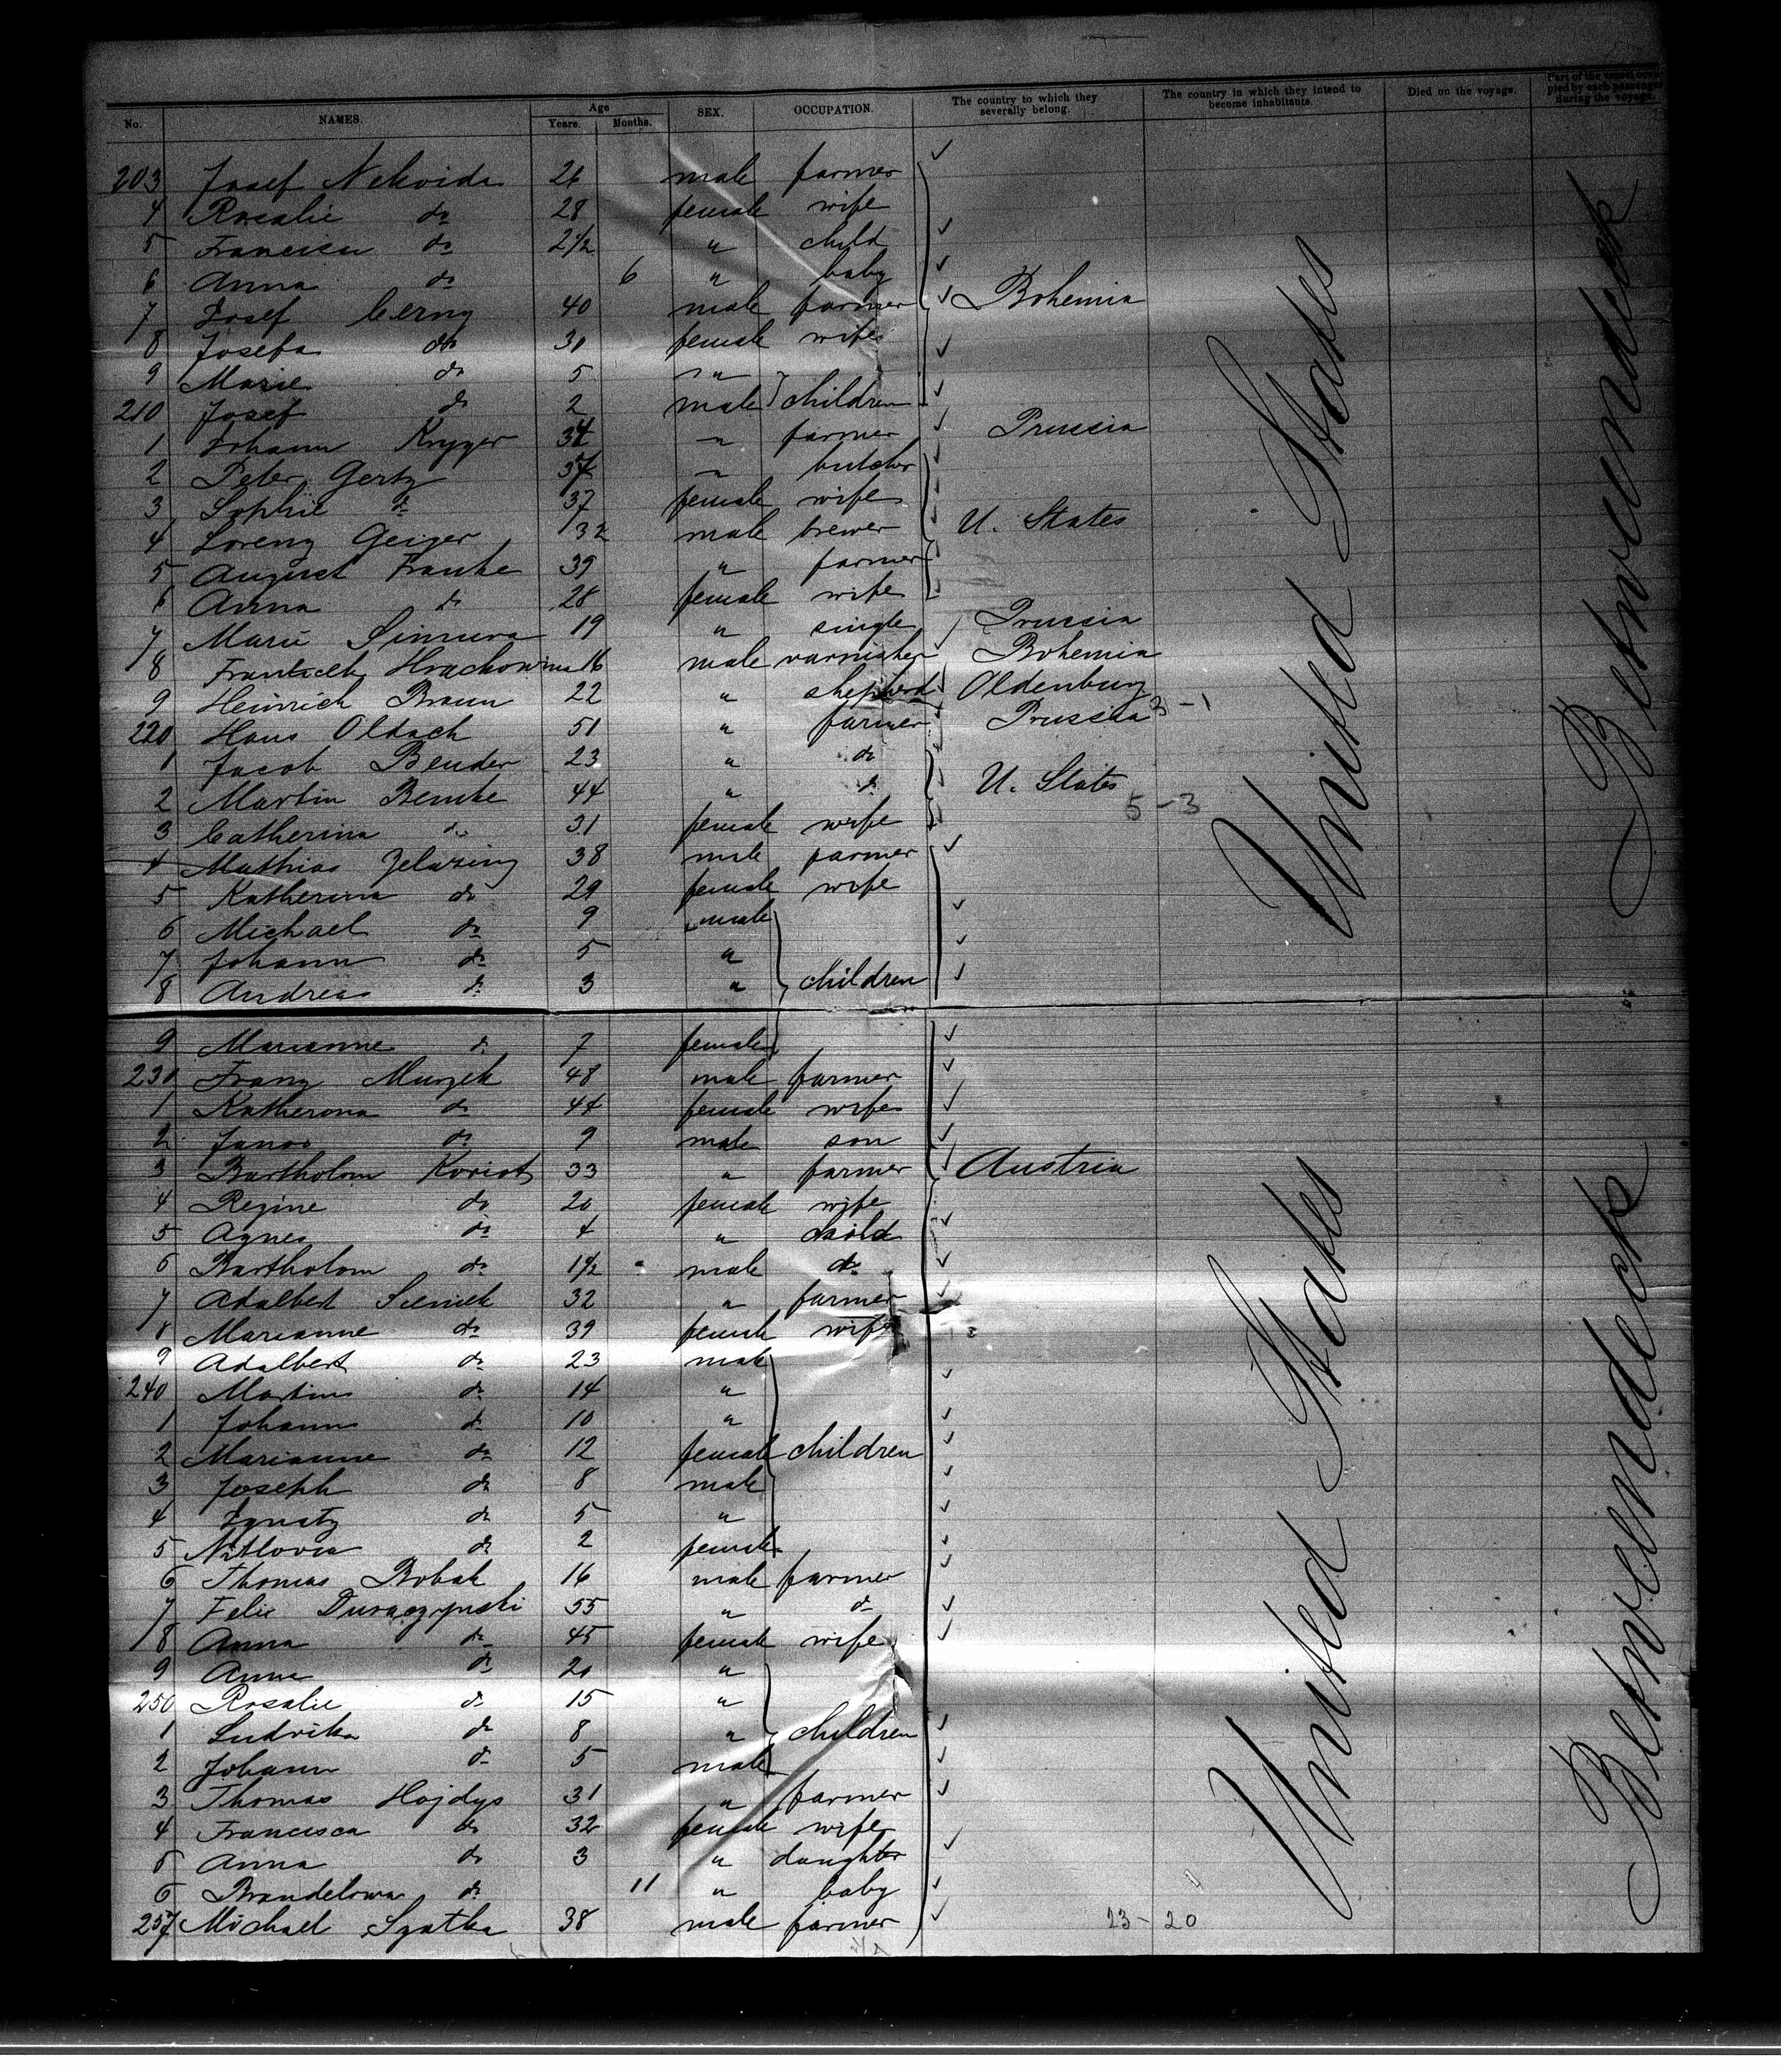 No. NAMES. Age Years. Months. SEX. OCCUPATION. The country to which they severally belong. The country in which they intend to become inhabitants. Died on the voyage. Part of the vessel occupied by each passenger during the voyage.
203 Josef Nekvida 26 male farmer
4 Rosalie do 28 female wife
5 Francisca do 2 1/2 " child
6 Anna do 6 " baby
7 Josef Cerny 40 male farmer Bohemia
8 Josefa do 30 female wife
9 Marie do 5 "
210 Josef do 2 male children
1 Johann Kryger 34 " farmer Prussia
2 Peter Gertz 37 " butcher
3 Sophie do 37 female wife
4 Lorenz Geiger 32 male brewer U. States
5 August Franke 39 " farmer
6 Anna do 28 female wife
7 Marie 19 " single Prussia
8 16 male varnisher Bohemia
9 Heinrich Braun 22 " shepherd Oldenburg
220 Hans Oldach 51 " farmer Prussia 3-1
1 Jacob Bender 23 " do
2 Martin Bemke 44 " do U. States
3 Catherina do 31 female wife 5-3
4 Mathias Zelazing 38 male farmer
5 Katherina do 29 female wife
6 Michael do 9 male
7 Johann do 5 "
8 Andreas do 3 " children
9 Marianne do 7 female
230 Franz Muzek 48 male farmer
1 Katherina do 44 female wife
2 Janos do 9 male son
3 Bartholom Koriot 33 " farmer Austria
4 Regine do 20 female wife
5 Agnes do 4 " child
6 Bartholom do 1 1/2 male do
7 Adalbert 32 " farmer
8 Marianne do 39 female wife
9 Adalbert do 23 male
240 Martin do 14 "
1 Johann do 10 "
2 Marianne do 12 female children
3 Joseph do 8 male
4 Ignatz do 5 "
5 do 2 female
6 Thomas Bobak 16 male farmer
7 Felix Duraczynski 55 " do
8 Anna do 45 female wife
9 Anna do 20 "
250 Rosalie do 15 "
1 Ludvika do 8 " children
2 Johann do 5 male
3 Thomas Hojdys 31 " farmer
4 Francisca do 32 female wife
5 Anna do 3 " daughter
6 do 11 " baby
257 Michael Szatka 38 male farmer 23-20
United States
Betweendeck
United States
Betweendeck